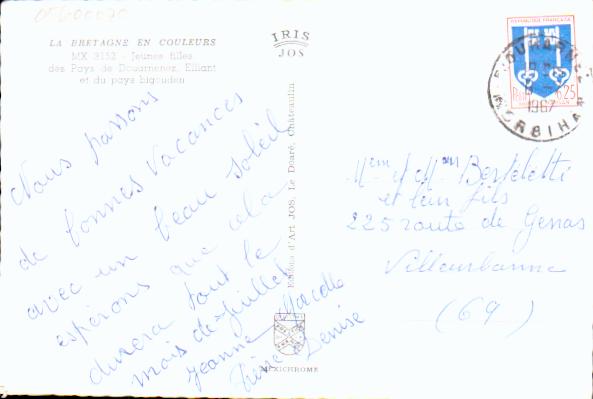 05600070
LA BRETAGNE EN COULEURS
MX 3152 - Jeunes filles
des Pays de Douarnenez, Elliant
et du pays bigouden
IRIS
JOS
Nous passons
de bonnes vacances
avec un beau soleil
espérons que cela
durera tout le
mois de Juillet
Jeanne Marcelle
Pierre Denise
Editions d'Art JOS, Le Doaré, Châteaulin
MEXICHROME
REPUBLIQUE FRANÇAISE
0,25
1967
MORBIHAN
et leur fils
225 route de Genas
Villeurbanne
(69)